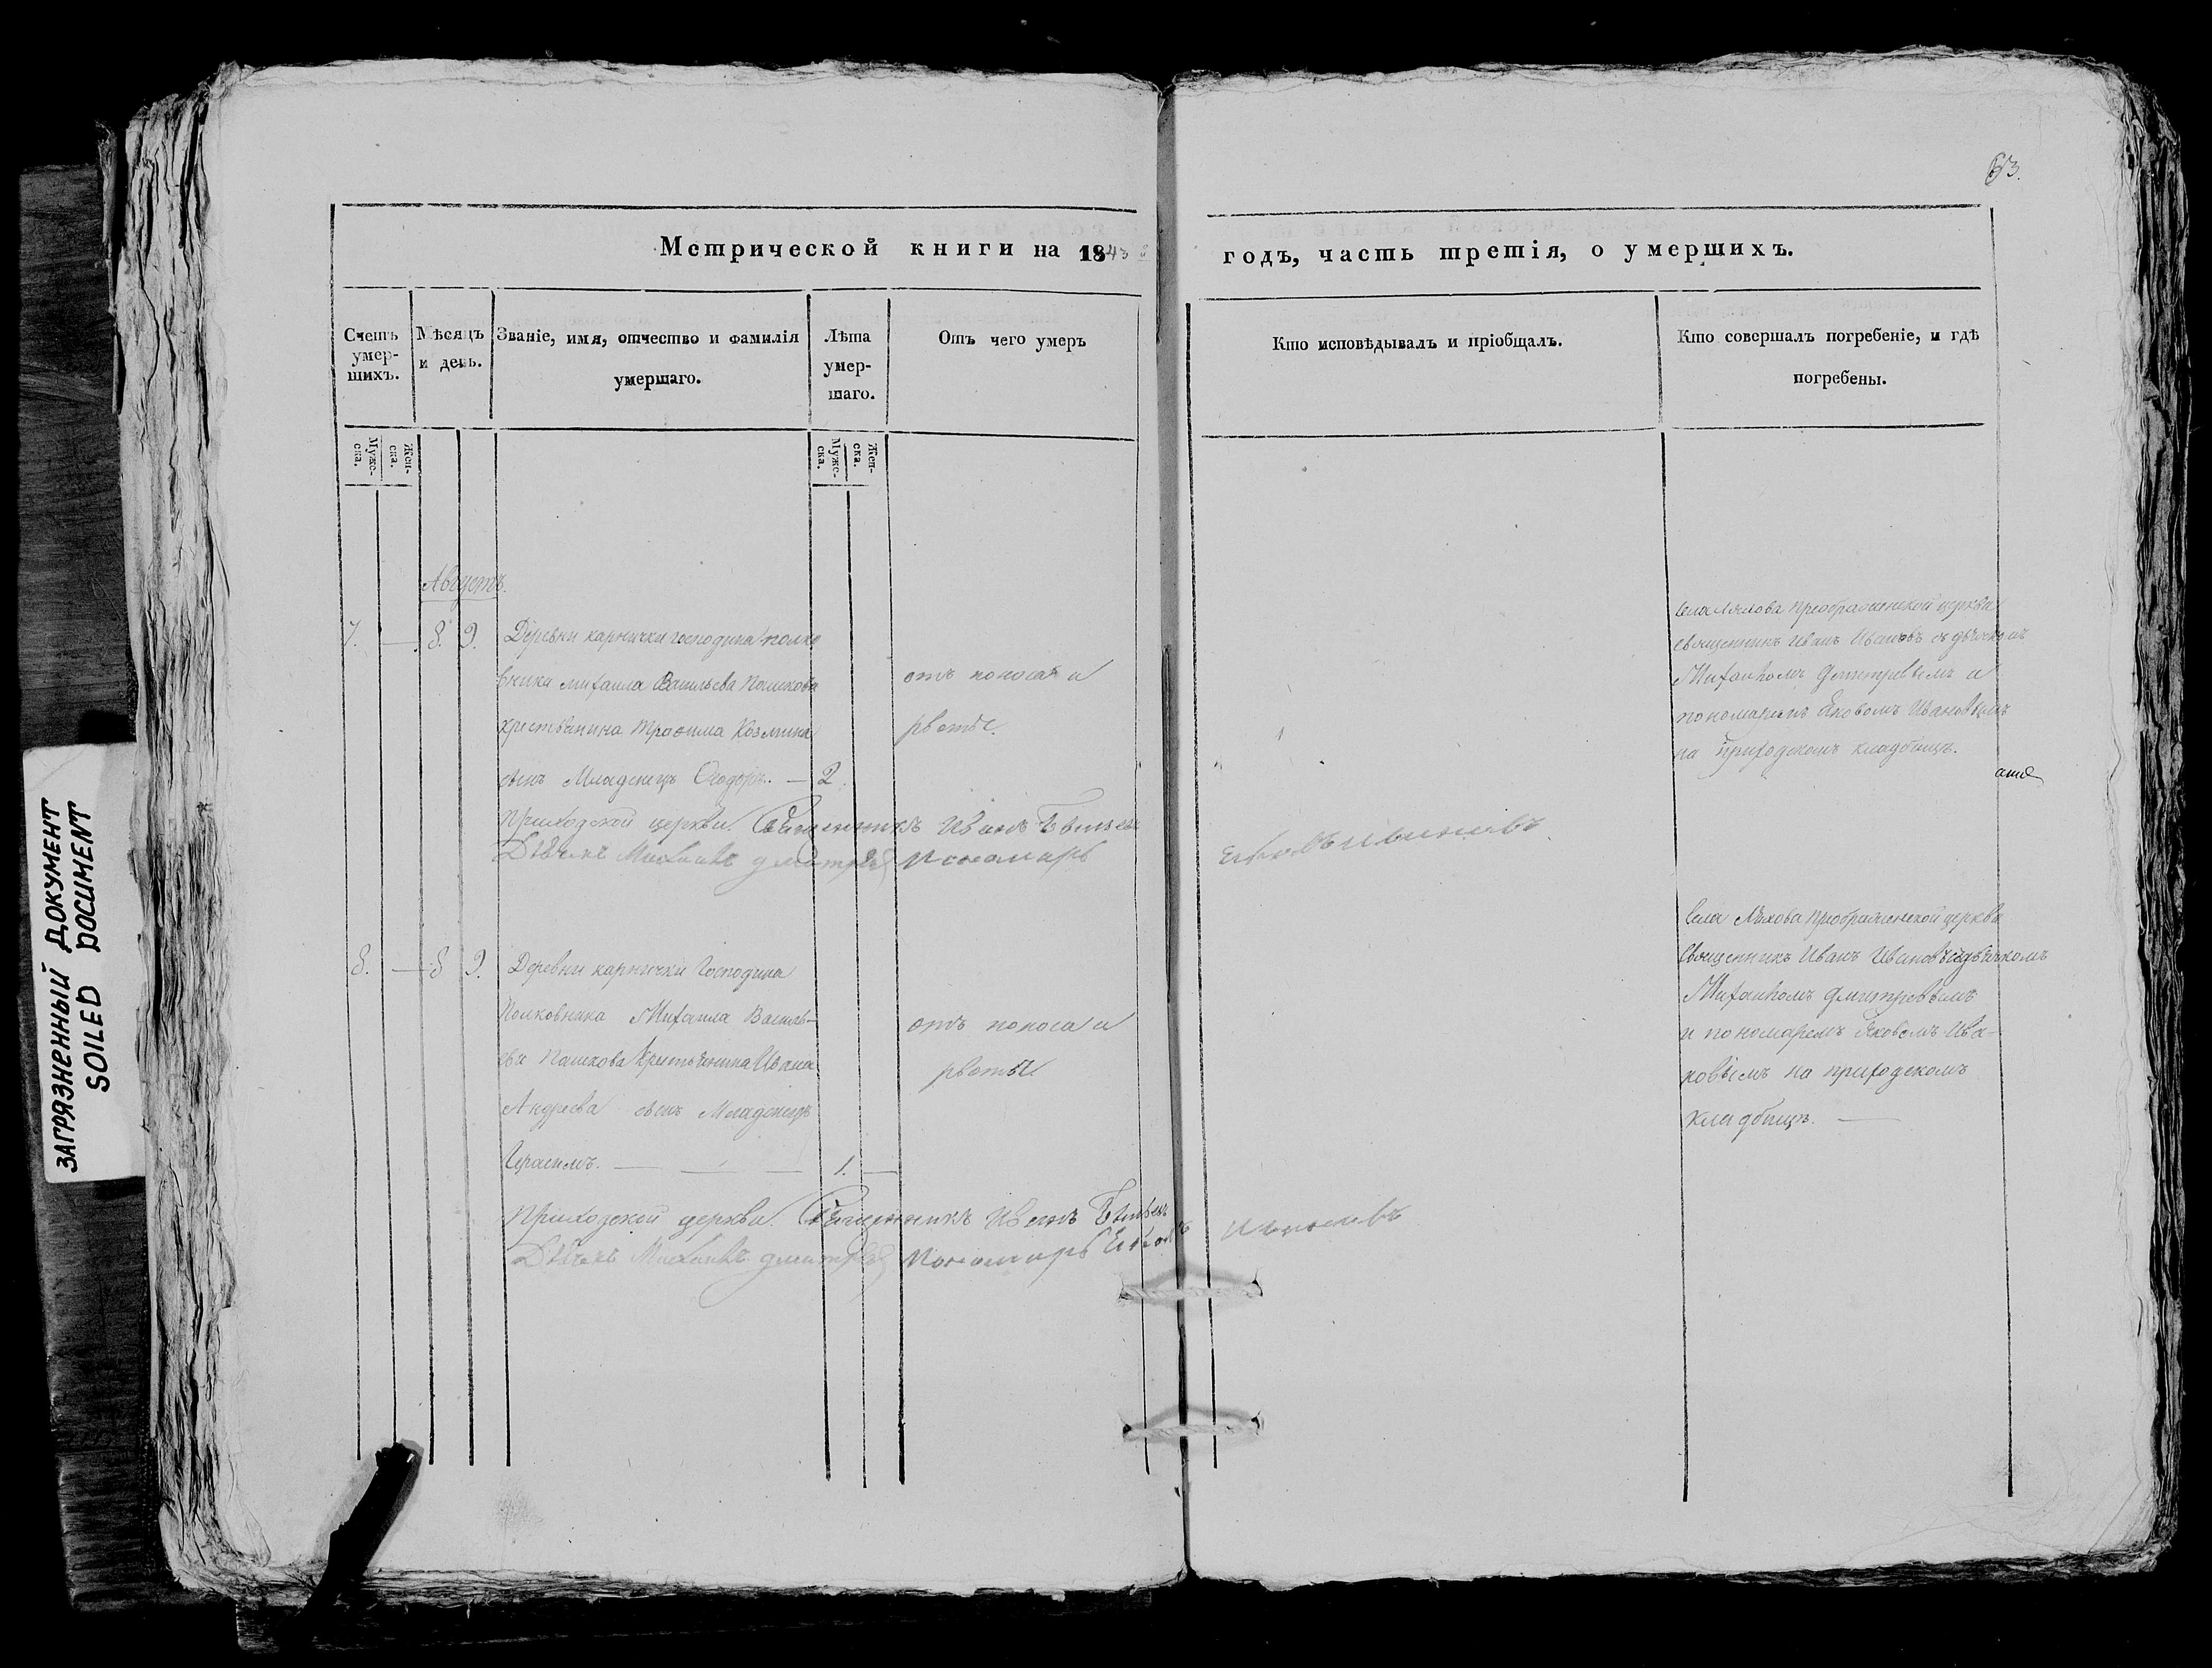 63.
Метрической книги на 1843 й годъ, часть третія, о умершихъ.
Счетъ умер-
шихъ.
Мѣсяцъ
и день.
Званіе, имя, отчество и фамилія
умершаго.
Лѣта
умер-
шаго.
Отъ чего умеръ
Кто исповѣдывалъ и пріобщалъ.
Кто совершалъ погребеніе, и гдѣ
погребены.
Муже-
ска.
Жен-
ска.
Муже-
ска.
Жен-
ска.
Августъ.
7. — 8. 9. Деревни карнички господина полко
вника михаила Васильева Пашкова
крестьянина Трофима Козмина
сынъ Младенецъ Ѳеодоръ. — 2.
отъ поноса и
рвоты.
села Преображенской церкви
священникъ Иванъ Ивановъ съ дьячкомъ
Михаиломъ Дмитріевымъ и
пономаремъ Яковомъ Ивановымъ
на приходскомъ кладбищѣ.
Приходской церкви. Священникъ Иванъ
Дьячекъ Михаилъ дмитревъ пономарь
Яковъ Ивановъ.
8. — 8 9. Деревни карнички Господина
Полковника Михаила Василь-
ева Пашкова крестьянина Ивана
Андреева сынъ Младенецъ
Герасимъ. — — — 1. —
отъ поноса и
рвоты.
Села Преображенской церкви
Священникъ Иванъ Ивановъ съ дьячкомъ
Михаиломъ Дмитріевымъ
и пономаремъ Яковомъ Ива-
новымъ на приходскомъ
кладбищѣ. —
Приходской церкви. Священникъ Иванъ
Дьячекъ Михаилъ дмитревъ пономарь Яковъ Ивановъ
ЗАГРЯЗНЕННЫЙ ДОКУМЕНТ
SOILED DOCUMENT